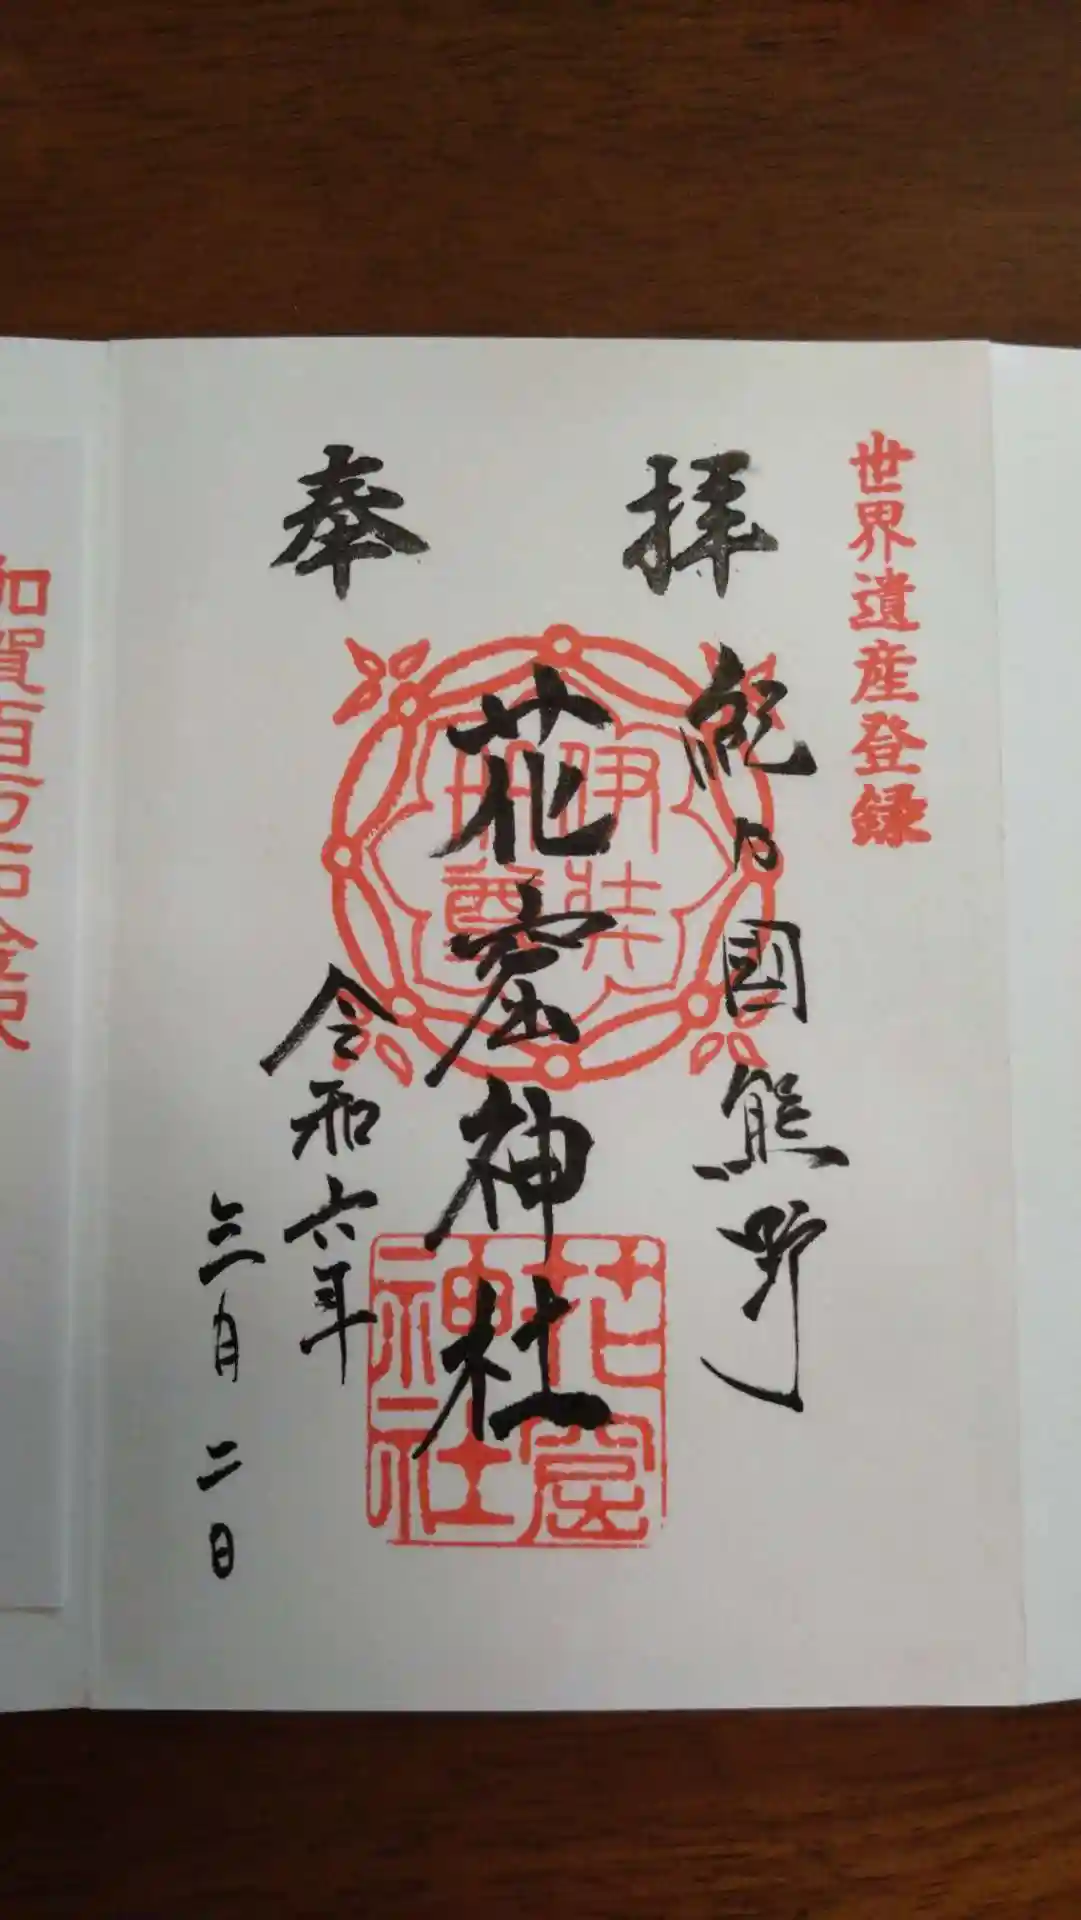 世界遺産登録
奉拝
紀乃國熊野
伊弉
冊尊
花窟神社
花窟
神社
令和六年
三月二日
加賀百万石金沢